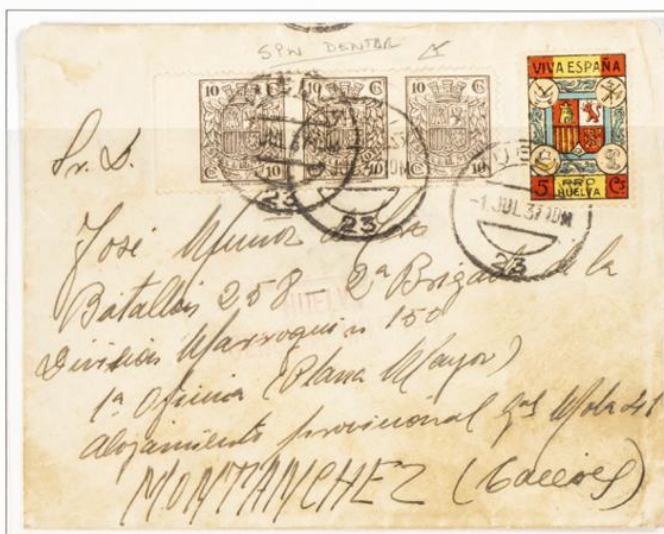 SPW DENTAR
10 CS 10 CS CS
10 10 10
VIVA ESPAÑA
5 PRO Cs
HUELVA
-1.JUL.37.10M
23
23
23
HUELVA
Sr. D.
José Muñoz de
Batallon 258 - 2ª Brigada de la
Division Marroqui n 150
1ª Oficina (Plana Mayor)
Alojamiento provincional Gral Mola 41
MONTANCHEZ (Caceres)